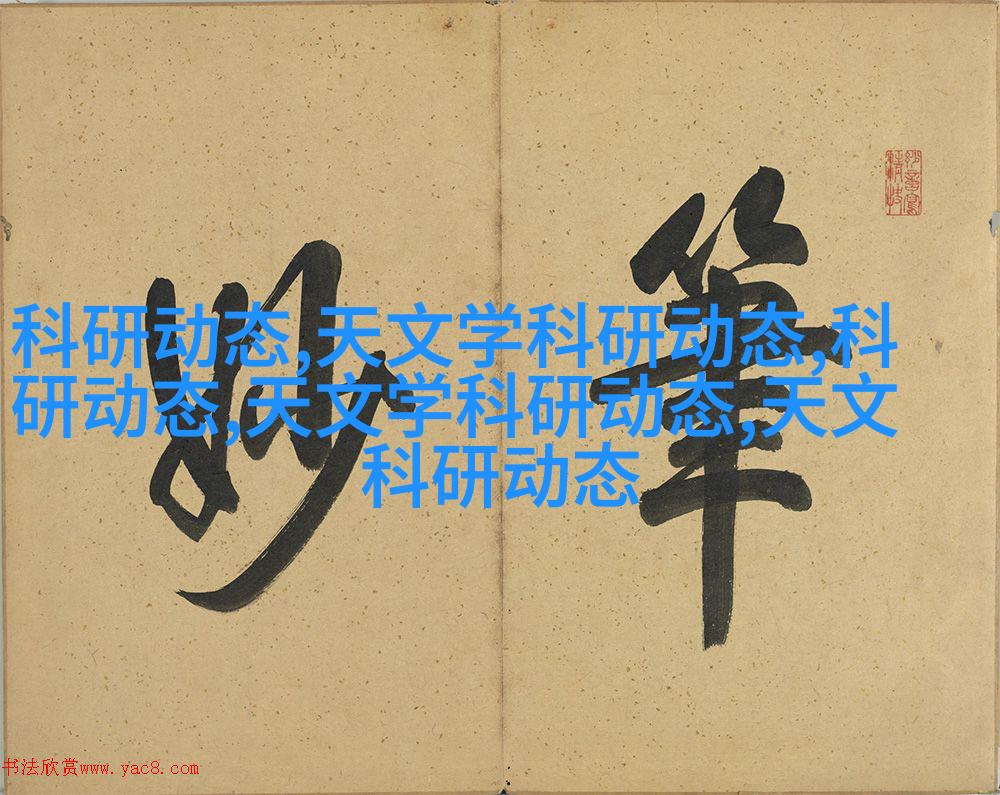 筆
妙
科研动态,天文学科研动态,科
研动态,天文学科研动态,天文
科研动态
书法欣赏www.yac8.com